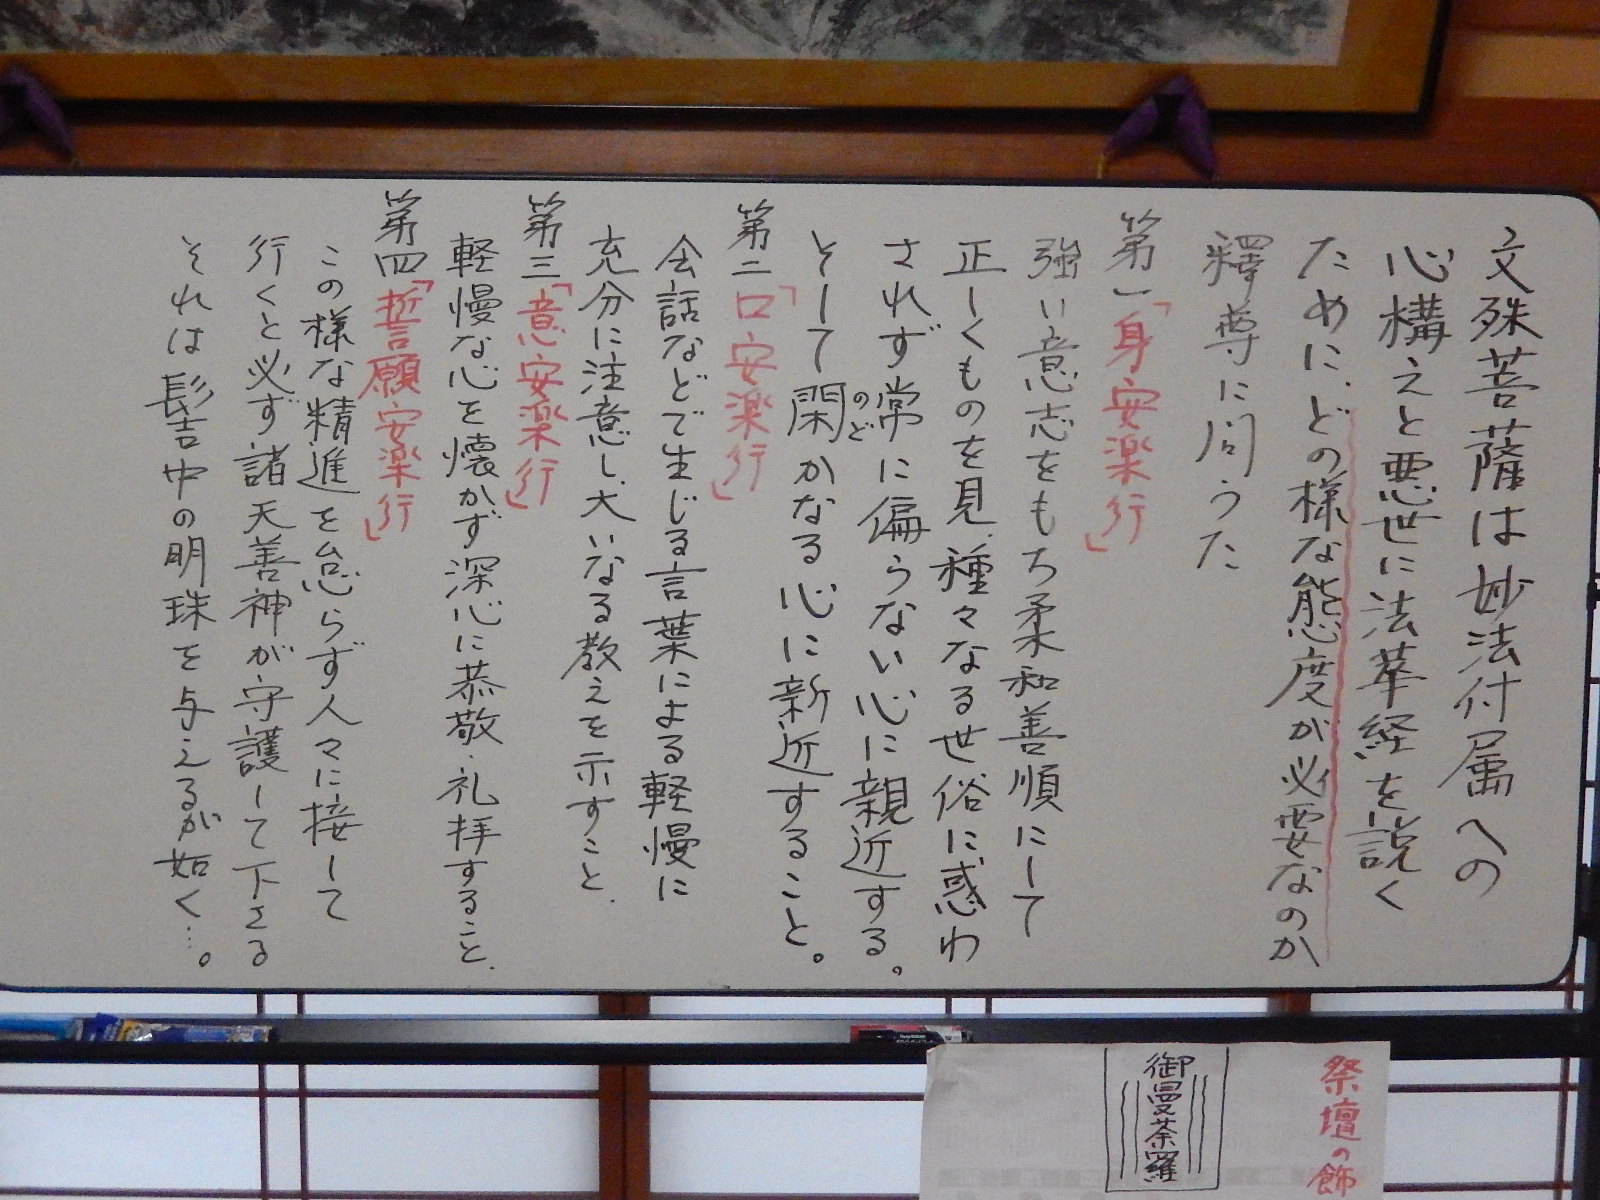 文殊菩薩は妙法付属への
心構えと悪世に法華経を説く
ために、どの様な態度が必要なのか
釋尊に問うた
第一「身安楽行」
強い意志をもち柔和善順にして
正しくものを見、種々なる世俗に惑わ
されず常に偏らない心に親近する。
そして閑かなる心に新近すること。
のど
第二「口安楽行」
会話などで生じる言葉による軽慢に
充分に注意し、大いなる教えを示すこと.
第三「意安楽行」
軽慢な心を懐かず深心に恭敬・礼拝すること.
第四「誓願安楽行」
この様な精進を怠らず人々に接して
行くと必ず諸天善神が守護して下さる
それは髻中の明珠を与えるが如く…。
祭壇の飾
御曼荼羅